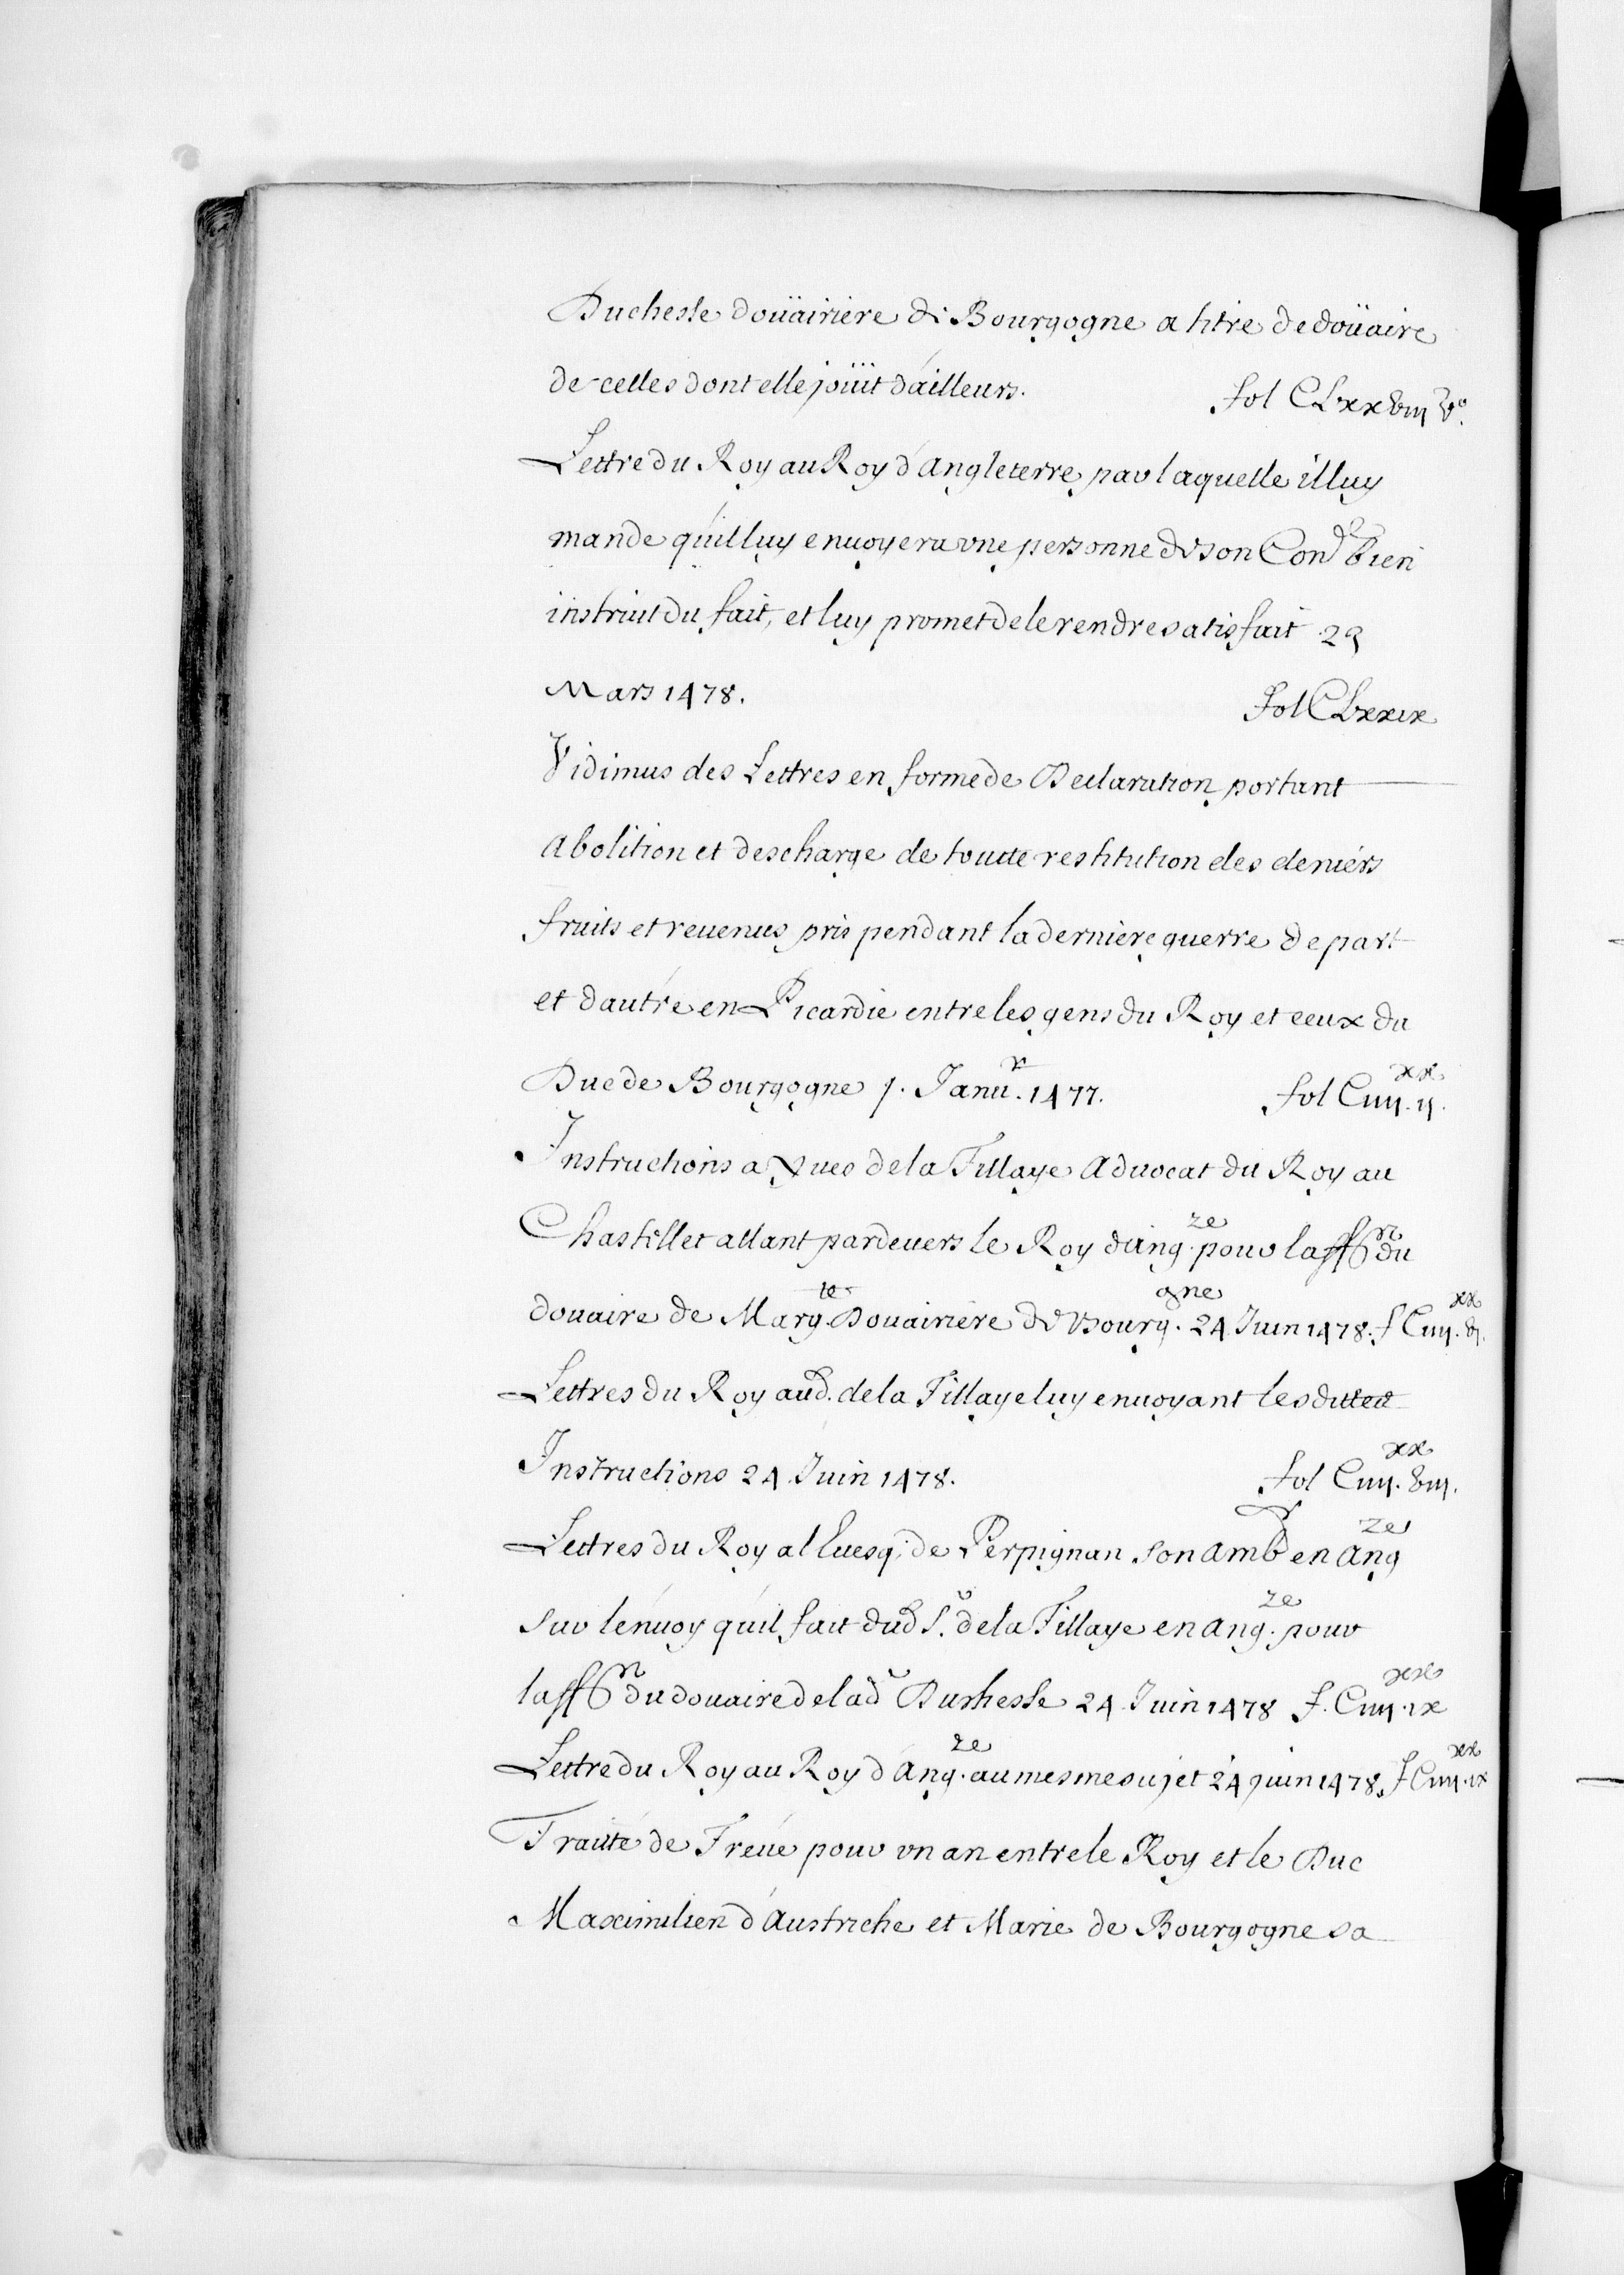 Duchesse doüairiere de Bourgogne a titre de doüaire
de celles dont elle joüit d'ailleurs. fol CLxxviij vº.
Lettre du Roy au Roy d'angleterre par laquelle il luy
mande qu'il luy enuoyera vne personne de son Con^el bien
instruit du fait, et luy promet de le rendre satisfait 29
Mars 1478. fol CLxxix
Vidimus des Lettres en forme de Declaration portant
abolition et descharge de toutte restitution des deniers
fruits et reuenus pris pendant la derniere guerre de part
et d'autre en Picardie entre les gens du Roy et ceux du
Duc de Bourgogne 1. Janu^r. 1477. fol Ciiij^xx.ij.
Instructions a Yues de la Tillaye aduocat du Roy au
Chastillet allant pardeuers le Roy d'ang^re. pour l'aff^on du
douaire de Marg^te. Douairiere de Bourg^gne. 24 Juin 1478. f Ciiij^xx. vj.
Lettres du Roy aud. de la Tillaye luy enuoyant lesdittes
Instructions 24 Juin 1478. fol Ciiij^xx. viij.
Lettres du Roy a l'Euesq; de Perpignan son amb^r en ang^re
sur l'enuoy qu'il fait dud S^r. de la Tillaye en ang^re. pour
l'aff^on du douaire de lad^e Duchesse 24 Juin 1478 f. Ciiij^xx.ix
Lettre du Roy au Roy d'ang^re. au mesme sujet 24 juin 1478. f Ciiij^xx.ix
Traitté de Treue pour vn an entre le Roy et le Duc
Maximilien d'austriche et Marie de Bourgogne sa